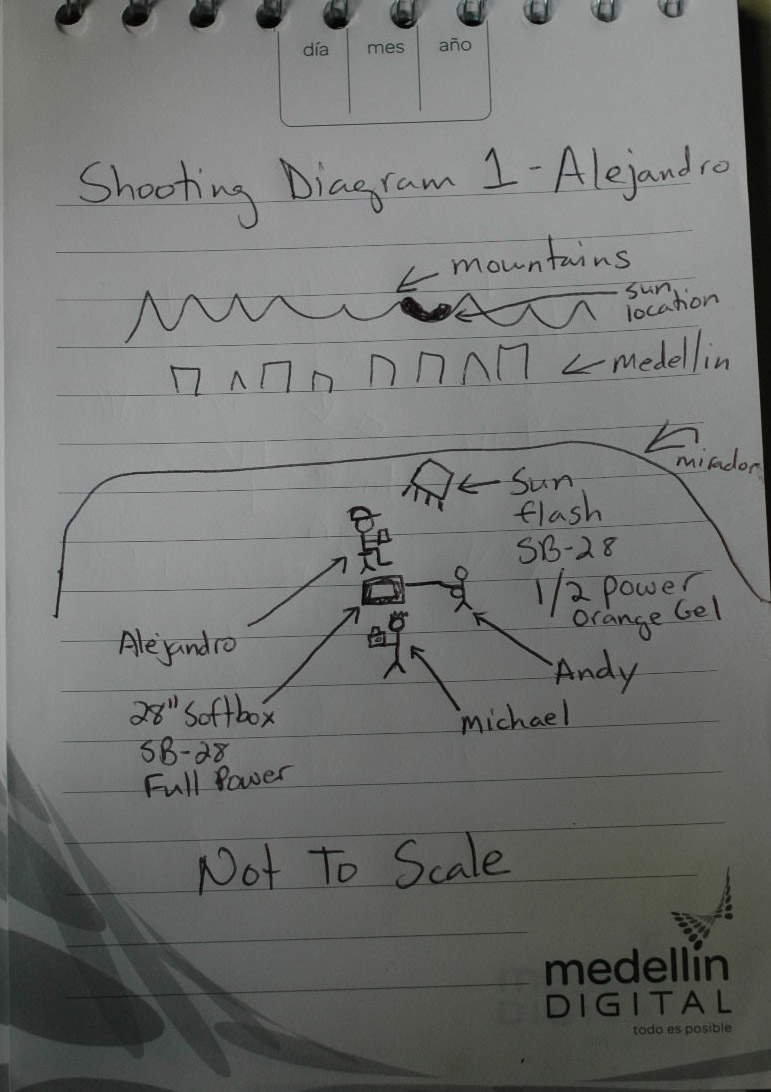 día mes año
Shooting Diagram 1 - Alejandro
mountains
sun
location
medellin
mirador
Sun
flash
SB-28
1/2 power
Orange Gel
Alejandro
Andy
28" Softbox
SB-28
Full Power
michael
Not To Scale
medellín
DIGITAL
todo es posible